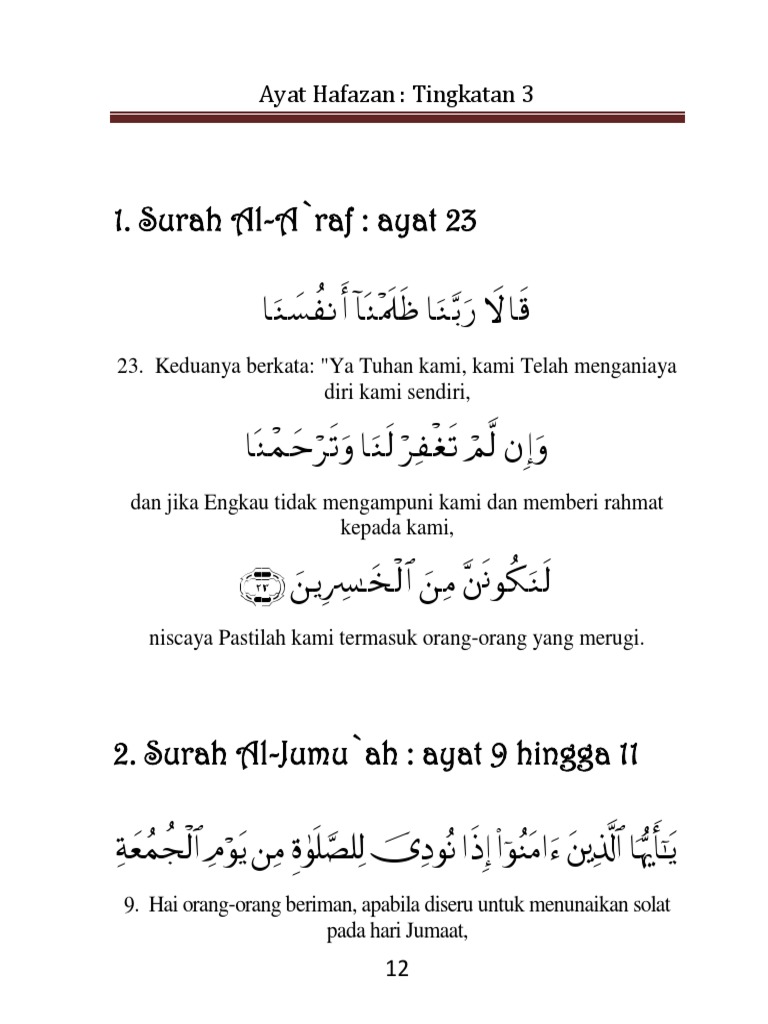 Ayat Hafazan : Tingkatan 3
1. Surah Al-A`raf : ayat 23
قَالَا رَبَّنَا ظَلَمْنَآ أَنفُسَنَا
23. Keduanya berkata: "Ya Tuhan kami, kami Telah menganiaya
diri kami sendiri,
وَإِن لَّمْ تَغْفِرْ لَنَا وَتَرْحَمْنَا
dan jika Engkau tidak mengampuni kami dan memberi rahmat
kepada kami,
لَنَكُونَنَّ مِنَ ٱلْخَـٰسِرِينَ ٢٣
niscaya Pastilah kami termasuk orang-orang yang merugi.
2. Surah Al-Jumu`ah : ayat 9 hingga 11
يَـٰٓأَيُّهَا ٱلَّذِينَ ءَامَنُوٓا۟ إِذَا نُودِىَ لِلصَّلَوٰةِ مِن يَوْمِ ٱلْجُمُعَةِ
9. Hai orang-orang beriman, apabila diseru untuk menunaikan solat
pada hari Jumaat,
12